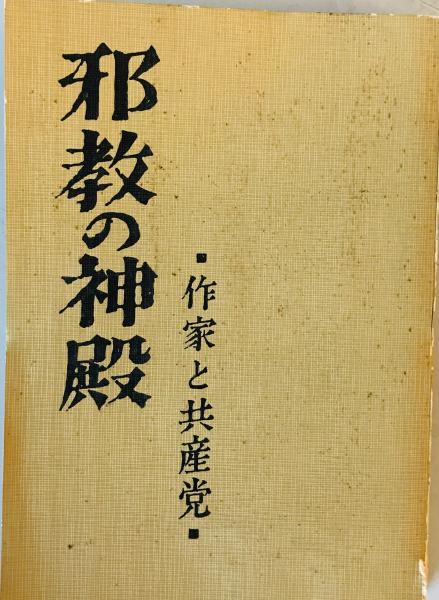 邪教の神殿
▪作家と共産党▪